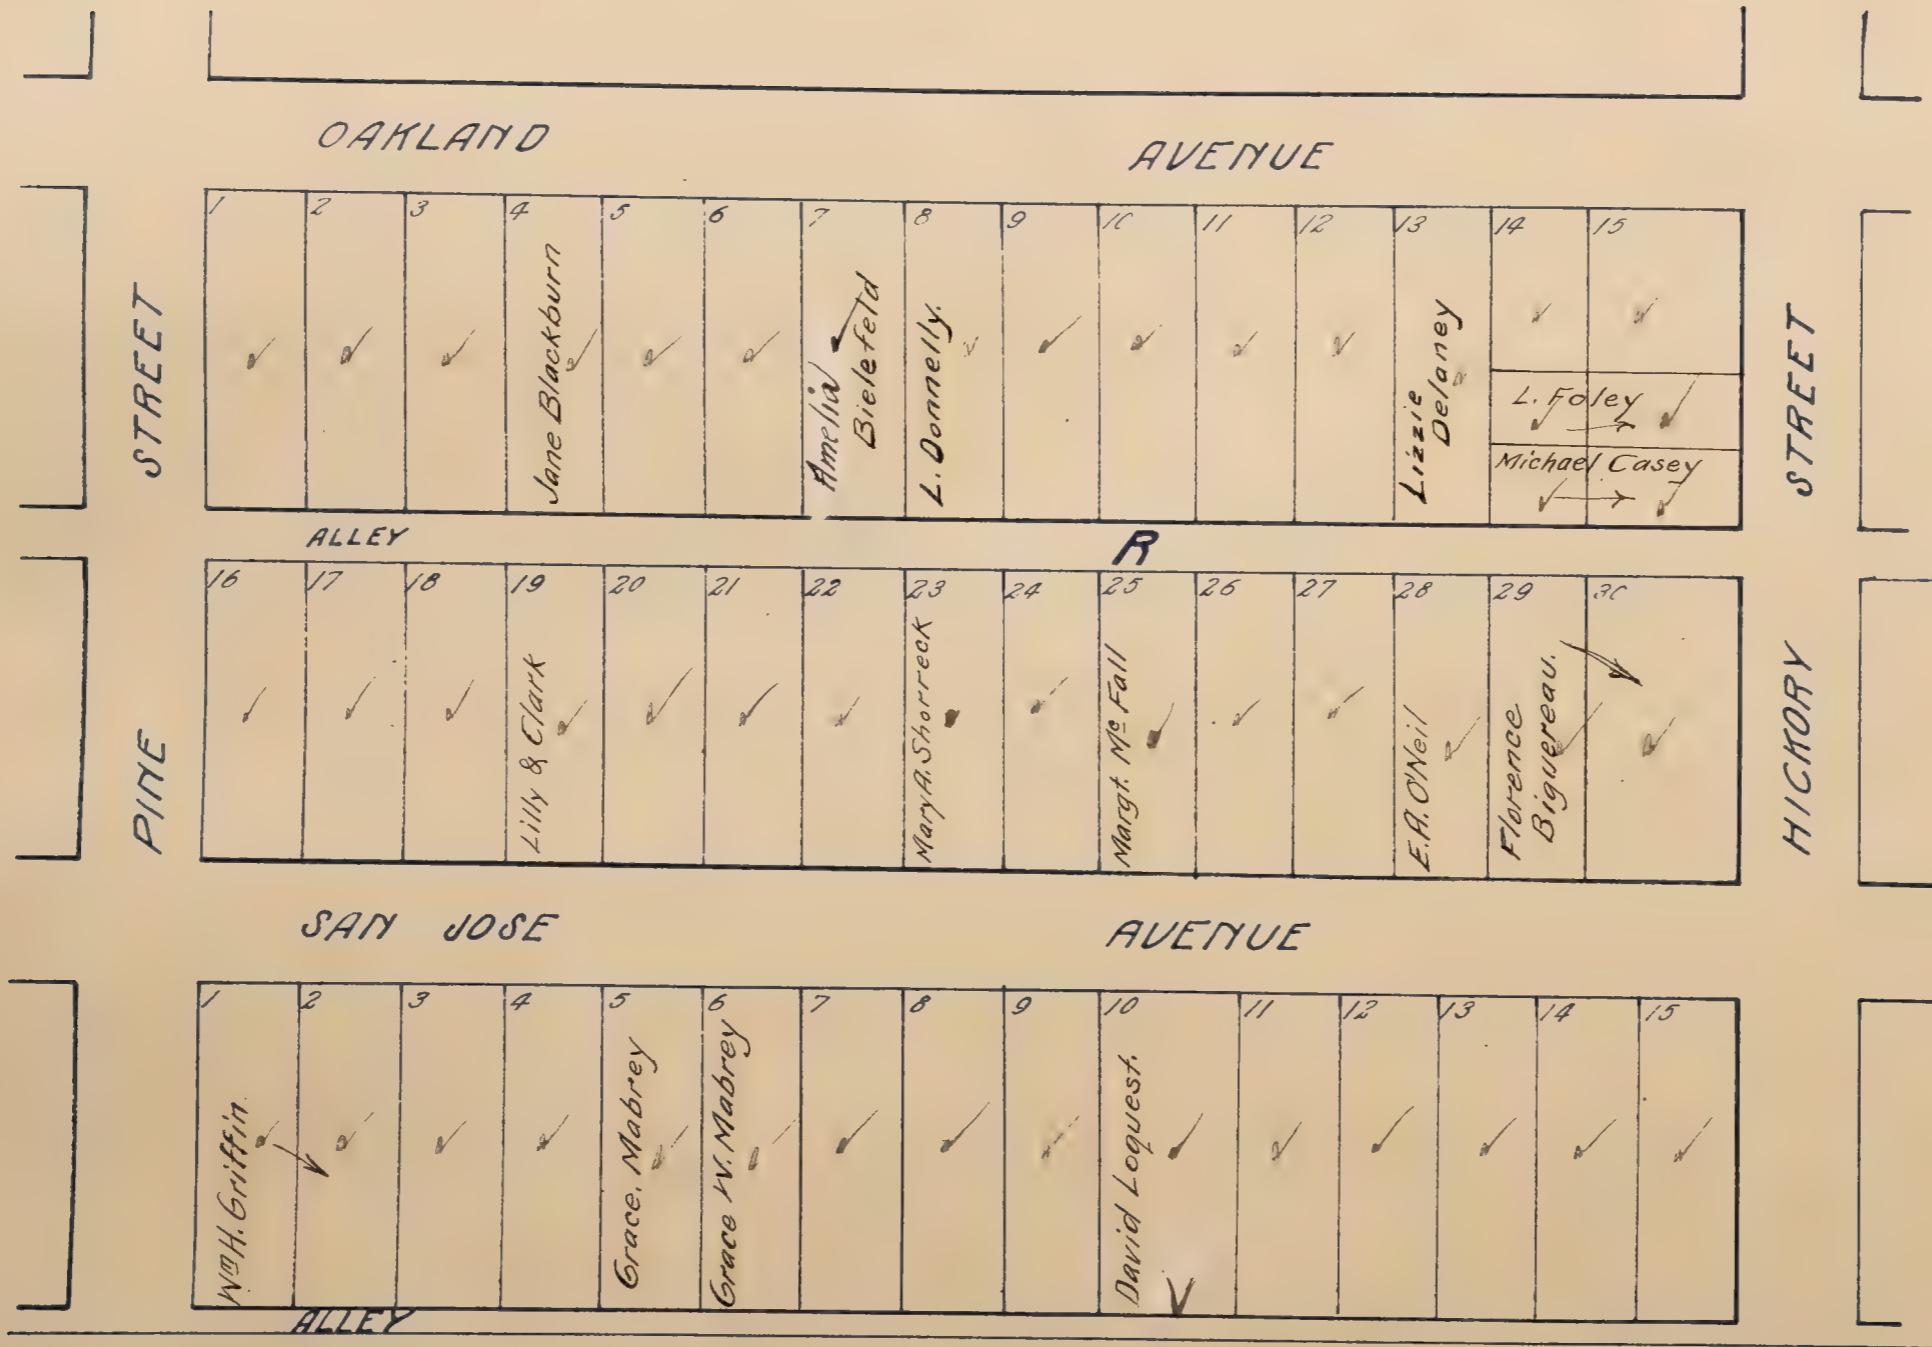 OAKLAND AVENUE
STREET
STREET
1 2 3 4 5 6 7 8 9 10 11 12 13 14 15
Jane Blackburn
Amelia
Bielefeld
L. Donnelly.
Lizzie
Delaney
L. Foley
Michael Casey
ALLEY
R
16 17 18 19 20 21 22 23 24 25 26 27 28 29 30
Lilly & Clark
Mary A. Shorreck
Margt. Mc Fall
E.A. O'Neil
Florence
Biguereau.
PINE
HICKORY
SAN JOSE AVENUE
1 2 3 4 5 6 7 8 9 10 11 12 13 14 15
Wm H. Griffin.
Grace. Mabrey
Grace W. Mabrey
David Loquest.
ALLEY